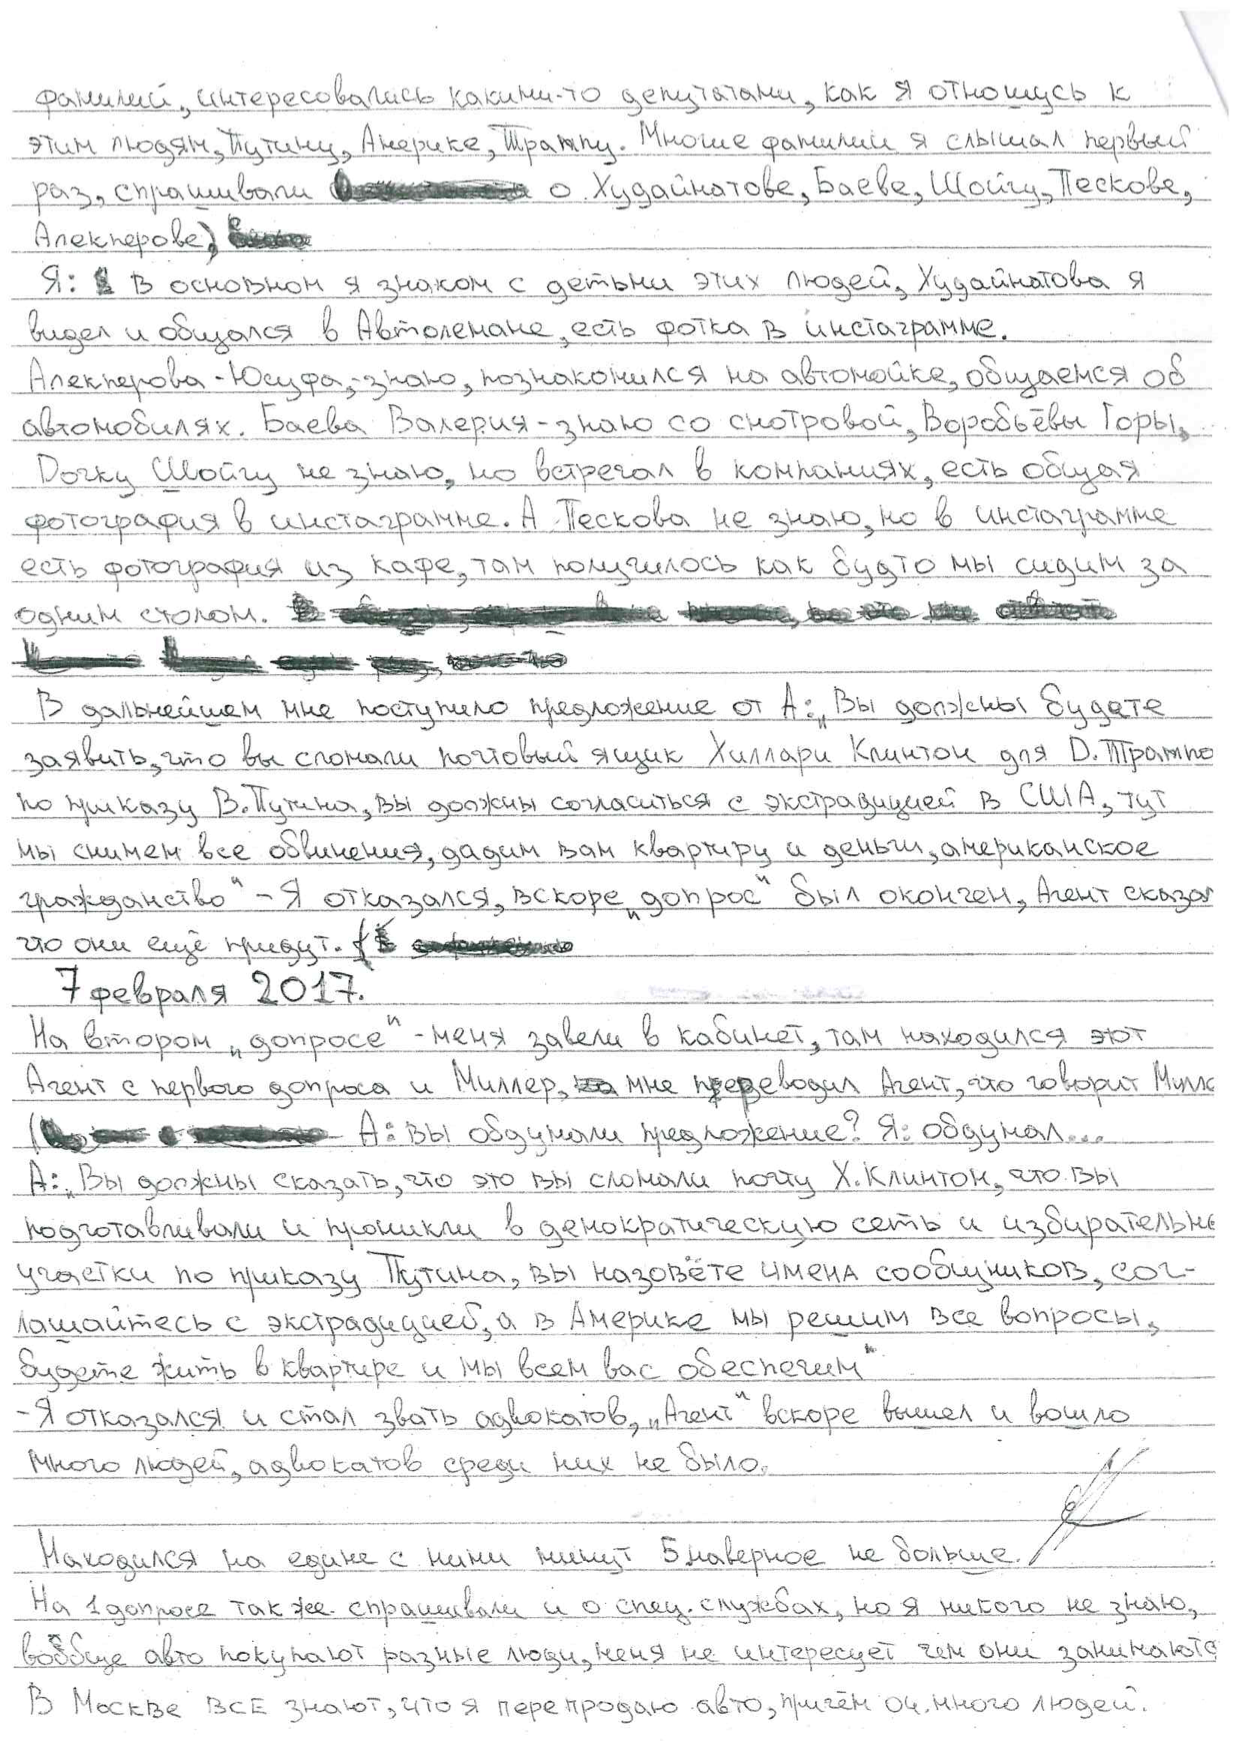 фамилий, интересовались какими-то депутатами, как я отношусь к
этим людям, Путину, Америке, Трампу. Многие фамилии я слышал первый
раз, спрашивали о Худайнатове, Баеве, Шойгу, Пескове,
Алекперове)
Я: В основном я знаком с детьми этих людей, Худайнатова я
видел и общался в Автолемане, есть фотка в инстаграмме.
Алекперова - Юсуфа, - знаю, познакомился на автомойке, общаемся об
автомобилях. Баева Валерия - знаю со смотровой, Воробьёвы Горы,
Дочку Шойгу не знаю, но встречал в компаниях, есть общая
фотография в инстаграмме. А Пескова не знаю, но в инстаграмме
есть фотография из кафе, там получилось как будто мы сидим за
одним столом.
В дальнейшем мне поступило предложение от А: „Вы должны будете
заявить, что вы сломали почтовый ящик Хиллари Клинтон для D. Трампа
по приказу В. Путина, вы должны согласиться с экстрадицией в США, тут
мы снимем все обвинения, дадим вам квартиру и деньги, американское
гражданство" - Я отказался, вскоре „допрос" был окончен, Агент сказал
что они ещё придут.
7 февраля 2017.
На втором „допросе" - меня завели в кабинет, там находился этот
Агент с первого допроса и Миллер, мне переводил Агент, что говорит Милле
А: вы обдумали предложение? Я: обдумал...
А: „Вы должны сказать, что это вы сломали почту Х. Клинтон, что вы
подготавливали и проникли в демократическую сеть и избирательные
участки по приказу Путина, вы назовёте имена сообщников, сог-
лашайтесь с экстрадицией, а в Америке мы решим все вопросы,
будете жить в квартире и мы всем вас обеспечим"
- Я отказался и стал звать адвокатов, „Агент" вскоре вышел и вошло
много людей, адвокатов среди них не было.
Находился на едине с ними минут 5 наверное не больше.
На 1 допросе так же спрашивали и о спец. службах, но я никого не знаю,
вообще авто покупают разные люди, меня не интересует чем они занимаются
В Москве ВСЕ знают, что я перепродаю авто, причём оч. много людей.